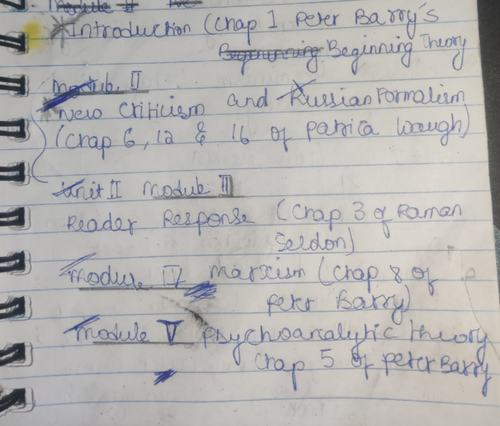 Module II
*Introduction (Chap 1 Peter Barry's
Beginning Theory
Module II
New Criticism and Russian Formalism
(Chap 6, 12 & 16 of Patrica Waugh)
Unit II Module III
Reader Response (Chap 3 of Raman
Seldon)
Module IV Marxism (Chap 8 of
Peter Barry)
Module V Psychoanalytic Theory
Chap 5 of Peter Barry